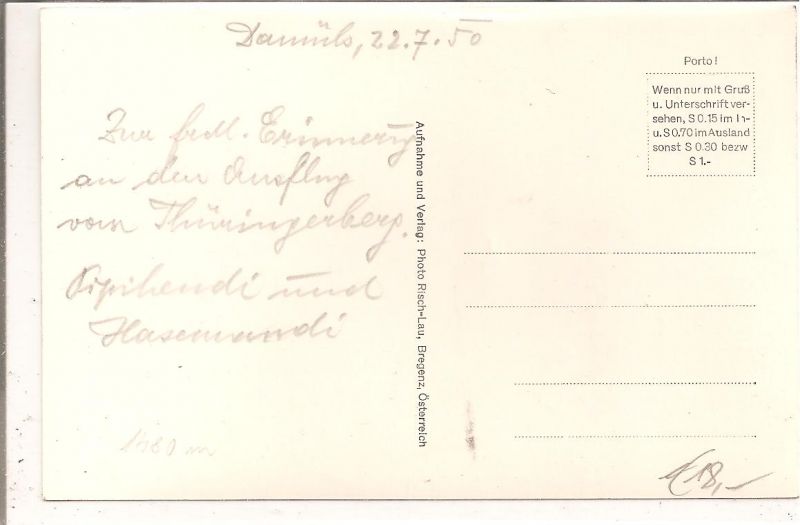 Damüls, 22.7.50
Zur frdl. Erinnerung
an den Ausflug
vom Thüringerberg.
und
Hasemandi
1480 m
Aufnahme und Verlag: Photo Risch-Lau, Bregenz, Österreich
Porto!
Wenn nur mit Gruß
u. Unterschrift ver-
sehen, S 0.15 im In-
u. S 0.70 im Ausland
sonst S 0.30 bezw
S 1.-
18,-